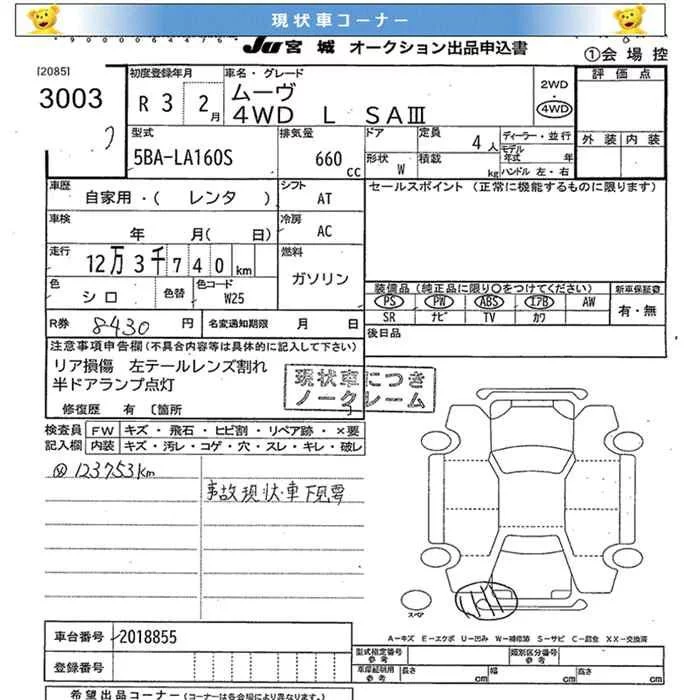 現状車コーナー
9000064764
JU 宮城 オークション出品申込書
①会場控
[2085]
3003
初度登録年月
R 3 2月
車名・グレード
ムーヴ
4WD L SAⅢ
2WD
・
4WD
評価点
外装 内装
型式
5BA-LA160S
排気量
660 cc
ドア
形状 W
定員 4人
積載 kg
ディーラー・並行
モデル年式 年
ハンドル 左・右
車歴
自家用・( レンタ )
シフト
AT
セールスポイント (正常に機能するものに限ります)
車検
年 月( 日)
冷房
AC
走行
12万3千740km
燃料
ガソリン
色
シロ
色替
色コード
W25
装備品 (純正品に限り○をつけてください)
新車保証書
PS PW ABS エアB AW
有・無
SR ナビ TV カワ
R券 8430 円
名変通知期限 月 日
後日品
注意事項申告欄 (不具合内容等は具体的に記入して下さい)
リア損傷 左テールレンズ割れ
半ドアランプ点灯
現状車につき
ノークレーム
修復歴 有 〔箇所
検査員 FW キズ・飛石・ヒビ割・リペア跡・×要
記入欄 内装 キズ・汚レ・コゲ・穴・スレ・キレ・破レ
123753km
事故現状車下見要
スペア
A-キズ E-エクボ U-凹み W-補修跡 S-サビ C-腐食 XX-交換済
車台番号 2018855
型式指定番号
参考
類別区分番号
参考
登録番号
参考
長さ cm
幅 cm
高さ cm
希望出品コーナー (コーナーは各会場により異なります。)